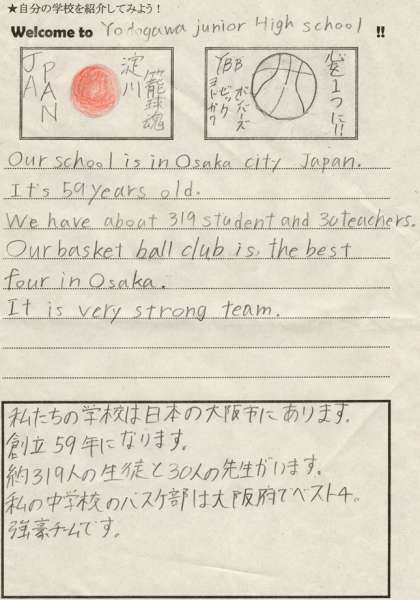 ★自分の学校を紹介してみよう!
Welcome to Yodogawa junior High school !!
JAPAN
淀川
籠球魂
YBB
ヨドガワ
ビッグ
ボンバーズ
心を1つに!!
Our school is in Osaka city Japan.
It's 59 years old.
We have about 319 student and 30 teachers.
Our basket ball club is the best
four in Osaka.
It is very strong team.
私たちの学校は日本の大阪市にあります。
創立59年になります。
約319人の生徒と30人の先生がいます。
私の中学校のバスケ部は大阪府でベスト4。
強豪チームです。